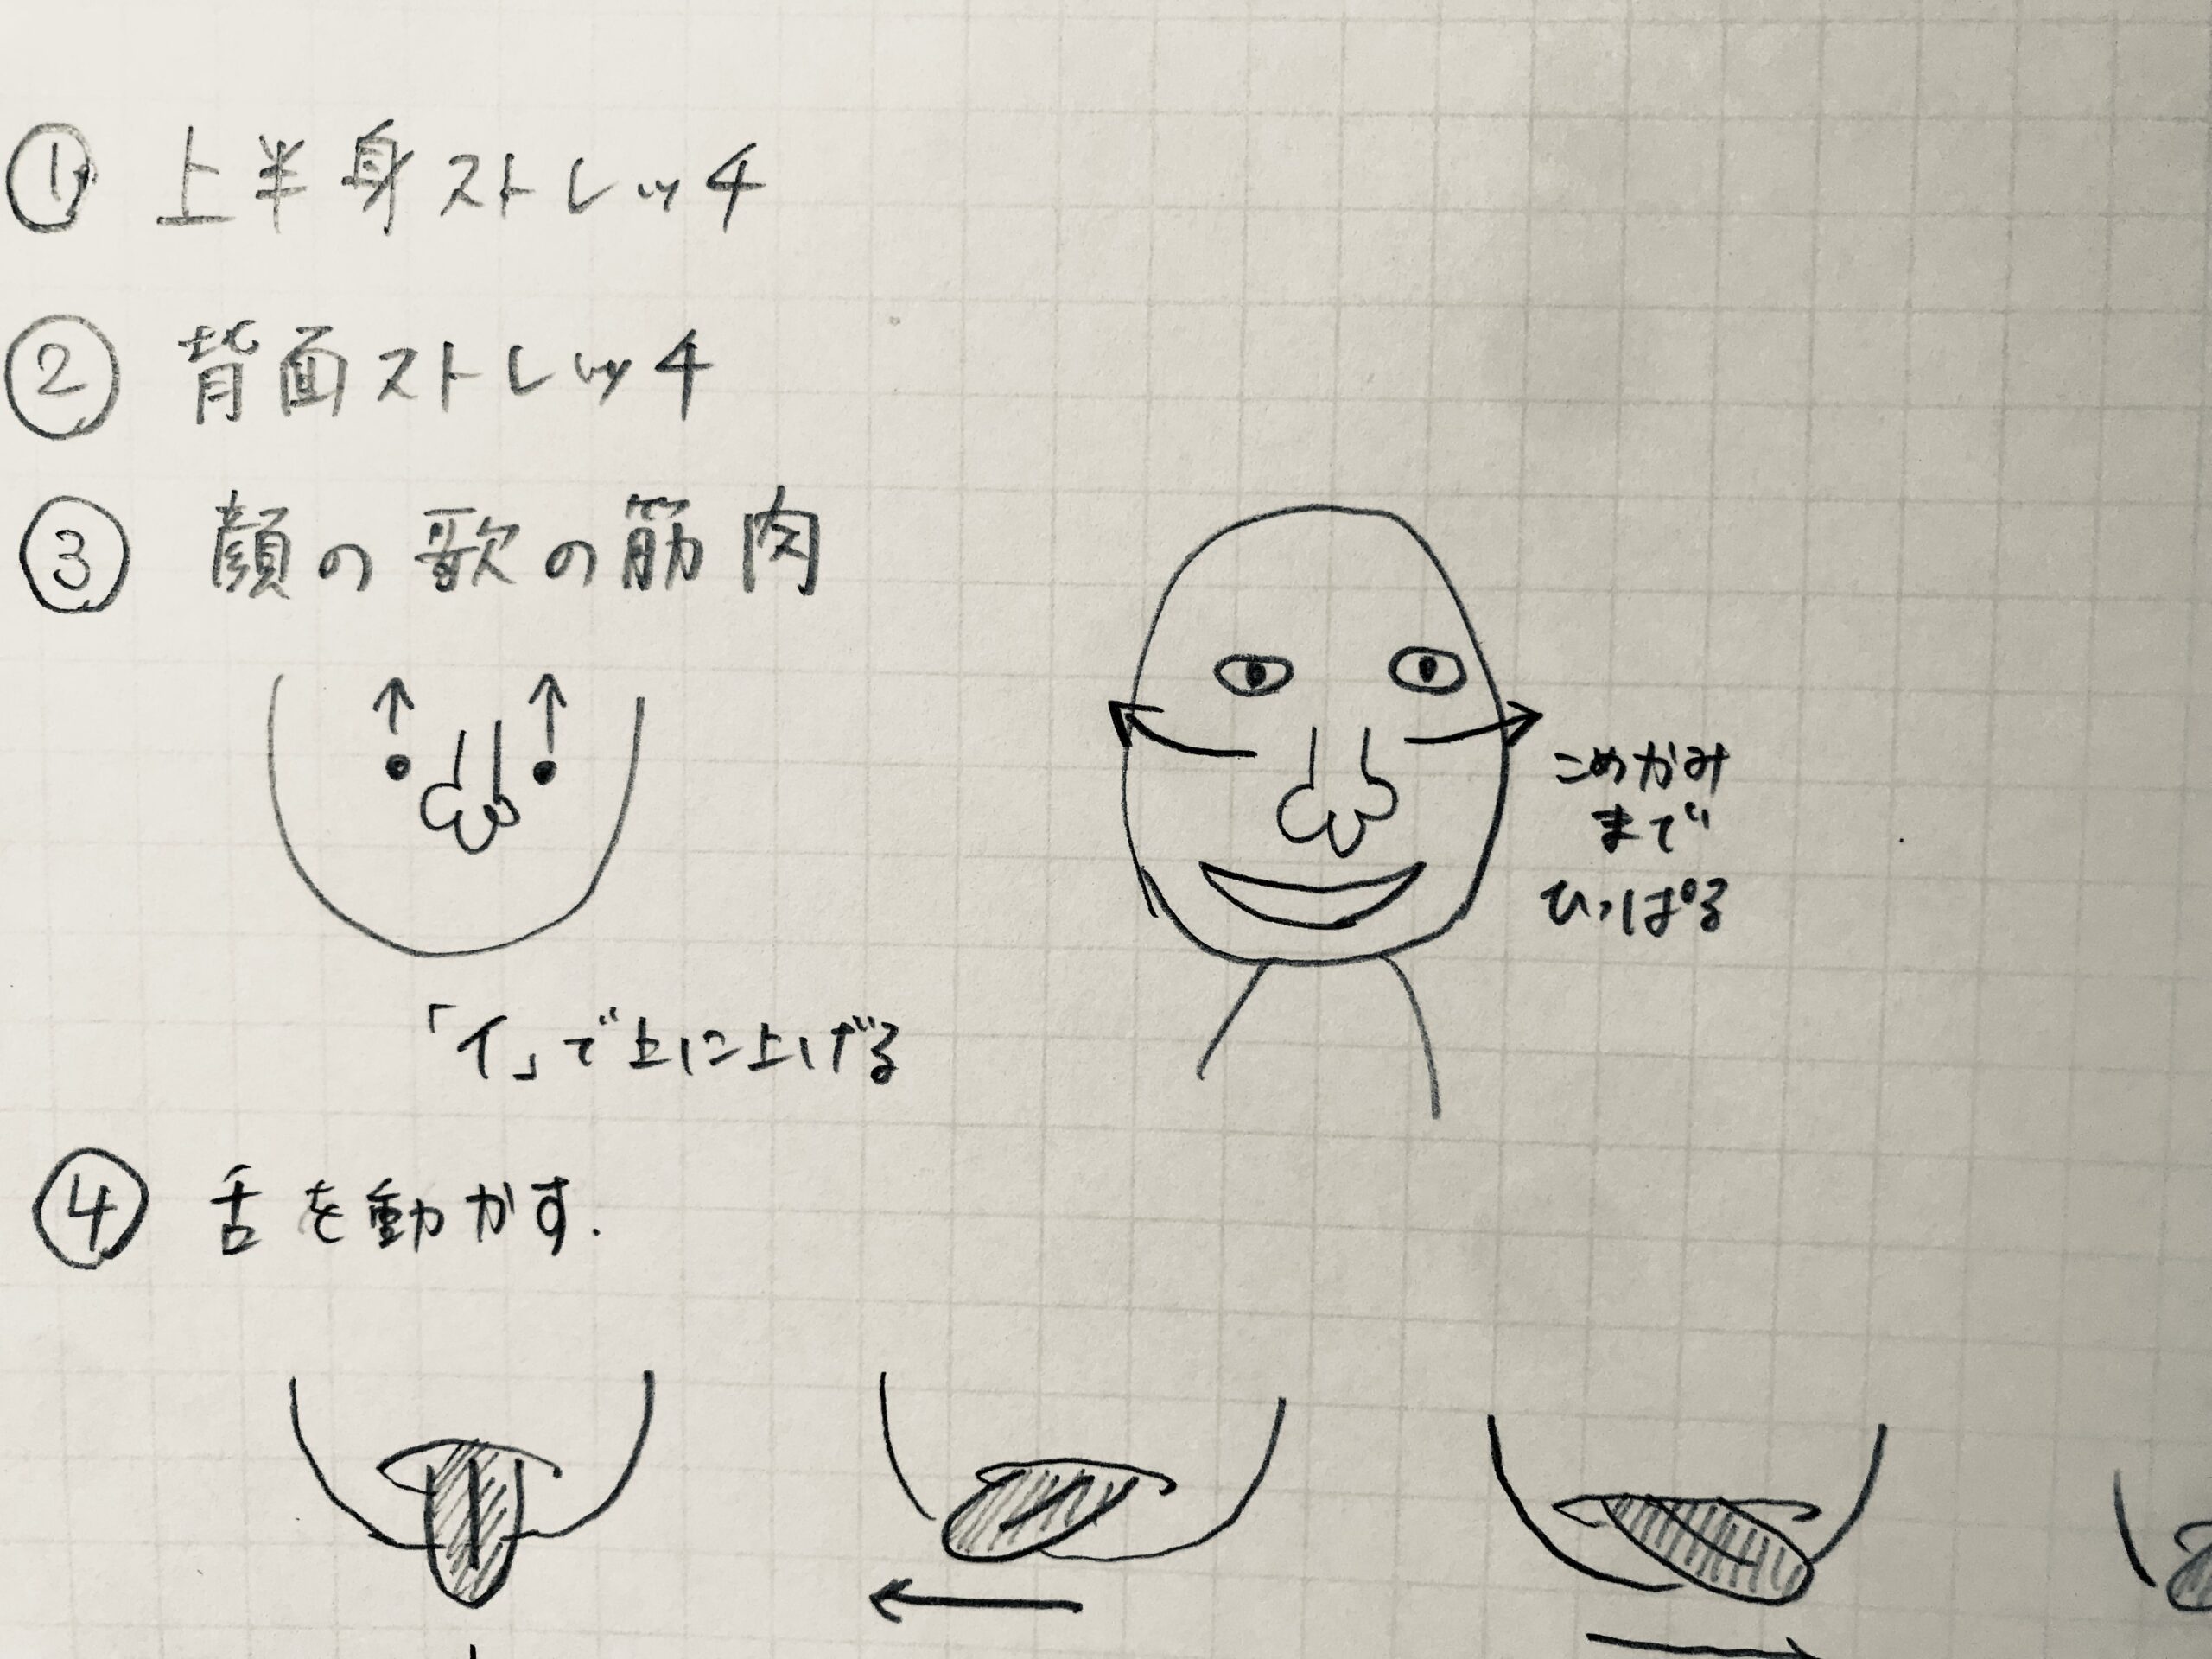 ① 上半身ストレッチ
② 背面ストレッチ
③ 顔の歌の筋肉
こめかみ
まで
ひっぱる
「イ」で上に上げる
④ 舌を動かす.